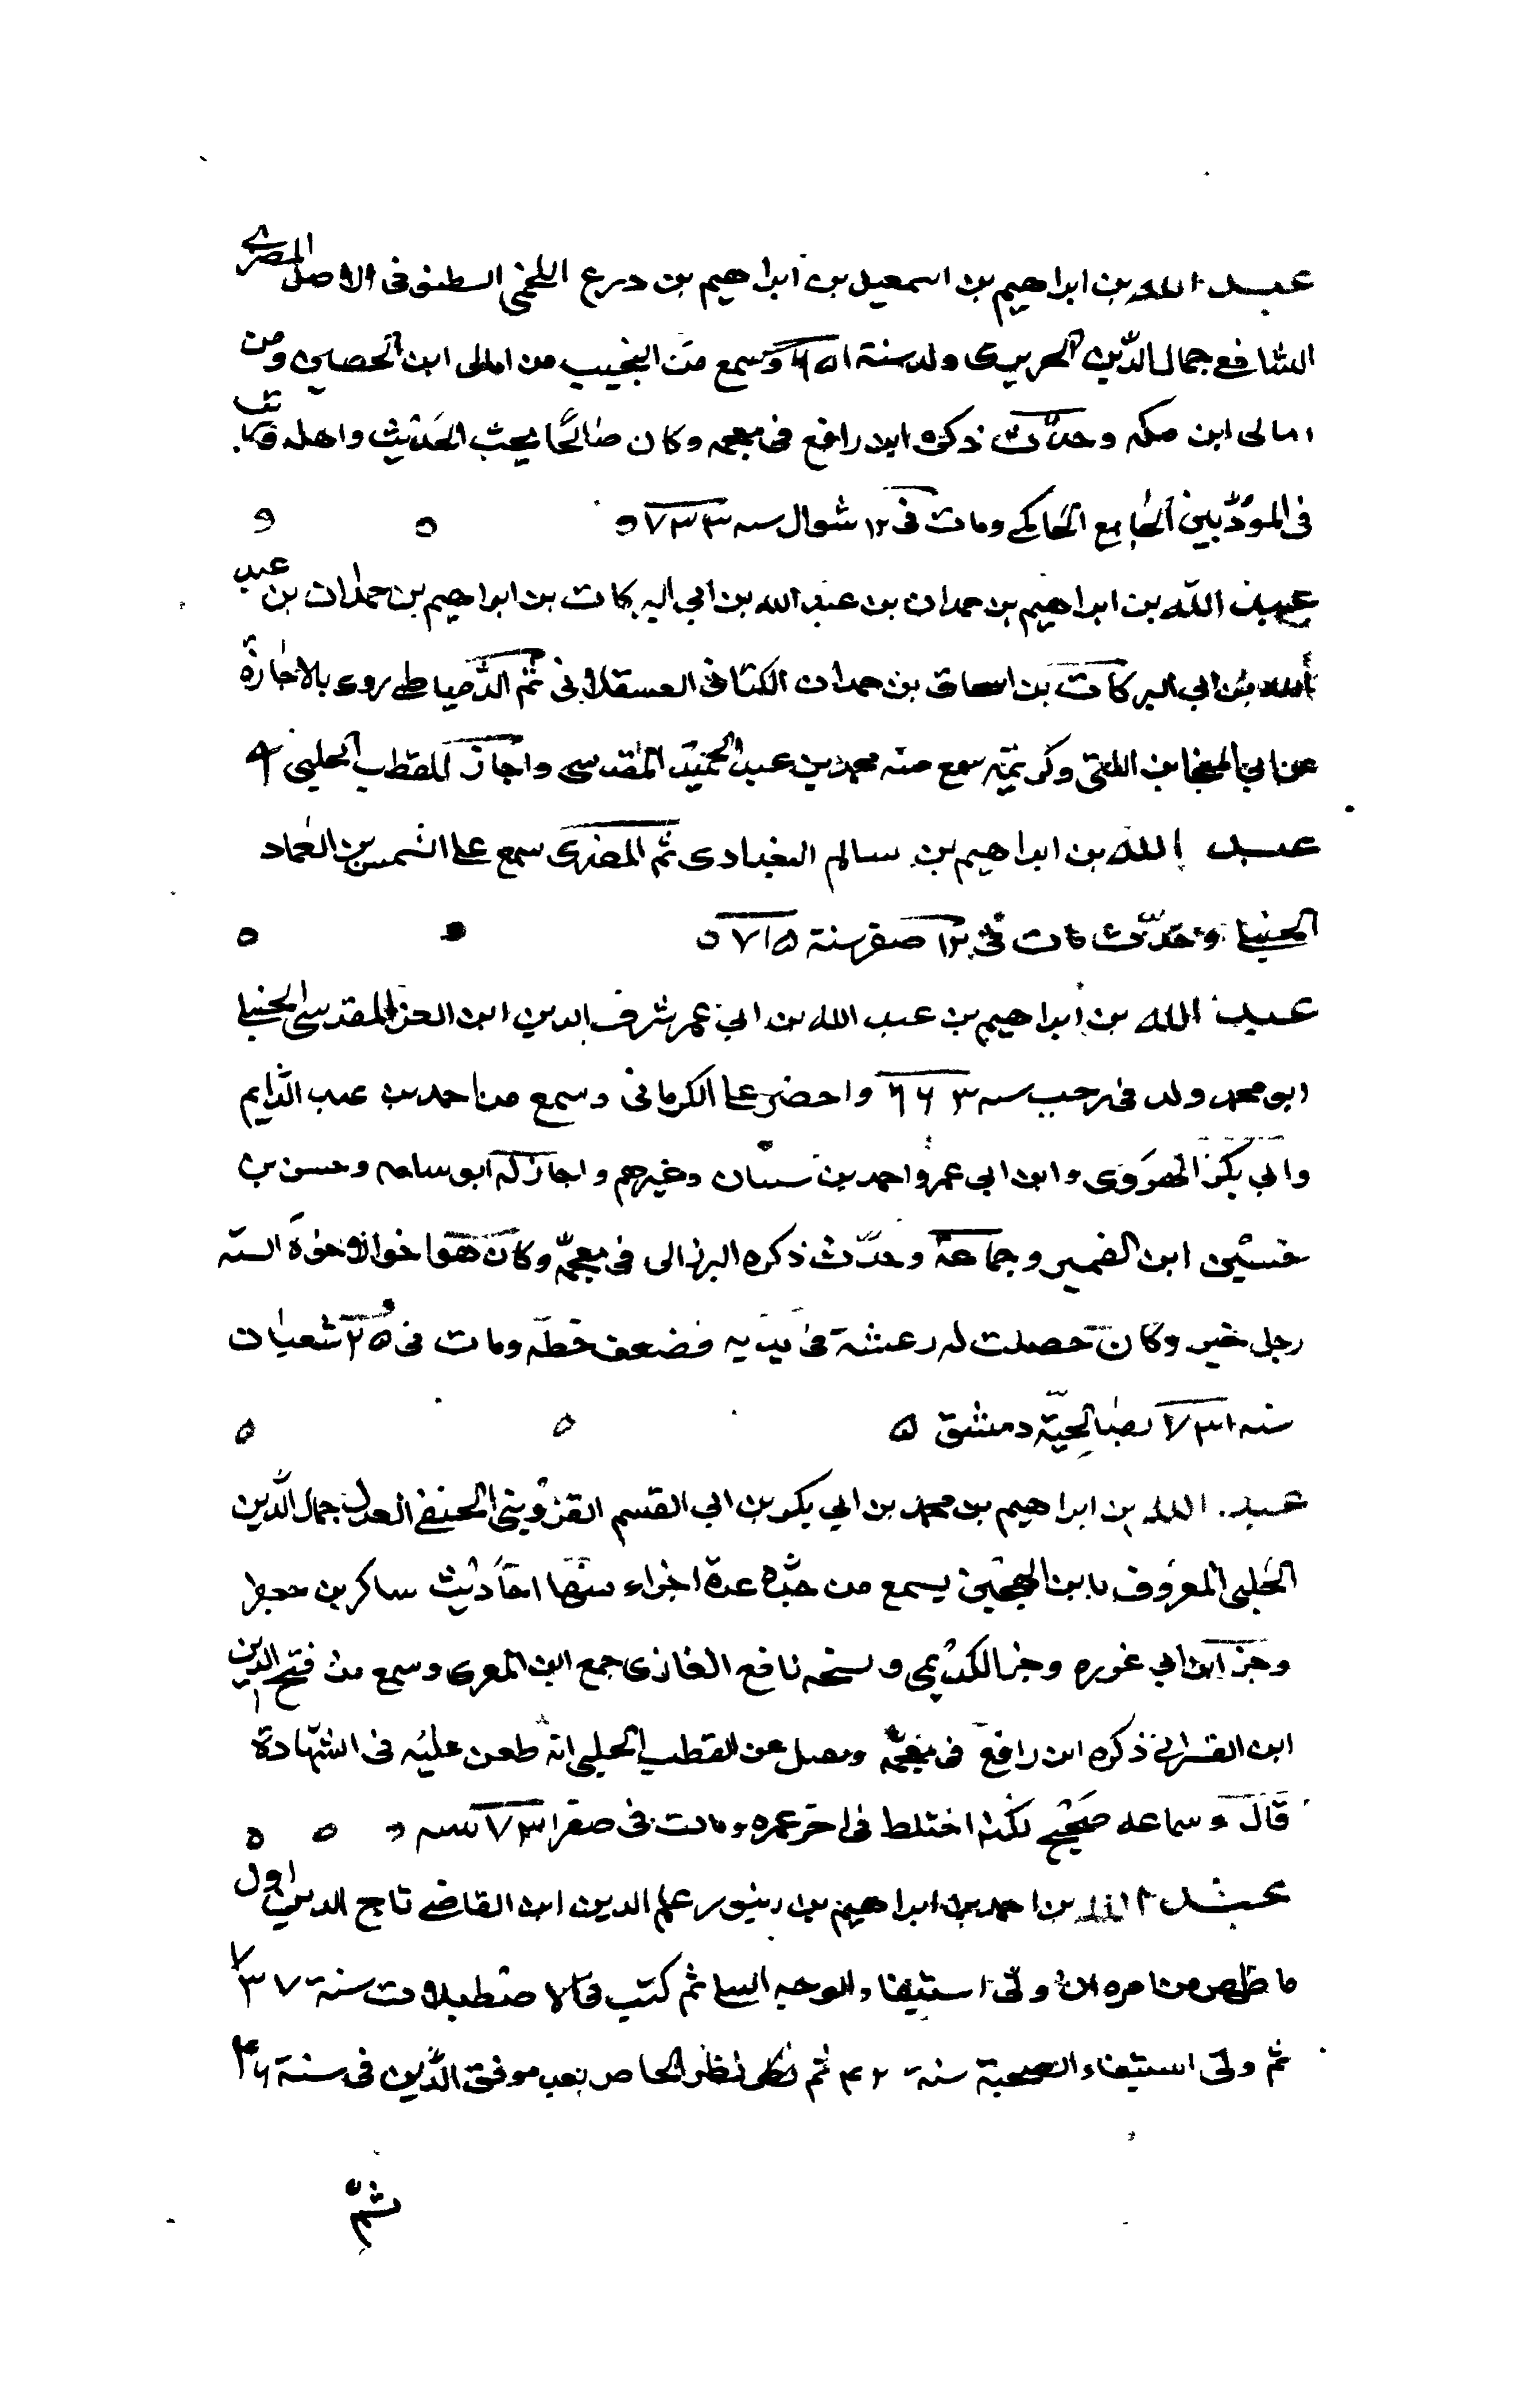 عبد الله بن ابراهيم بن اسمعيل بن ابراهيم بن درع اللخمي السطنوفى الاصل المصرى
الشافعي جمال الدين الحريرى ولد سنة ٦٥١ وسمع من النجيب من امالى ابن الحصين ومن
امالى ابن ملة وحدّث ذكره ابن رافع فى معجمه وكان صالحًا يحب الحديث واهله وكان
فى المؤذّنين الجامع الحاكمي ومات فى ١٢ شوال سنه ٧٣٣
عبد الله بن ابراهيم بن حمدان بن عبد الله بن ابي البركات بن ابراهيم بن حمدان بن عبد
الله بن ابي البركات بن اسحاق بن حمدان الكنانى العسقلانى ثم الدمياطى روى بالاجازة
عن ابي المنجا بن اللتى وكريمة سمع منه محمد بن عبد الحميد المقدسى واجاز للقطب الحلبي
عبد الله بن ابراهيم بن سالم البغدادى ثم المصرى سمع على الشمس بن العماد
الحنبلي وحدّث مات فى ١٢ صفر سنة ٧١٥
عبد الله بن ابراهيم بن عبد الله بن ابي عمر شرف الدين ابن العز المقدسى الحنبلي
ابو محمد ولد فى رجب سنه ٦٦٣ واحضر على الكرمانى وسمع من احمد بن عبد الدايم
وابي بكر الهروى وابن ابي عمر واحمد بن سنان وغيرهم واجاز له ابو سامه وحسن بن
حسين ابن الضمير وجماعة وحدّث ذكره البرزالى فى معجمه وكان هو اخو الاخوة الستة
رجل خير وكان حصلت له رعشة فى يديه فضعف خطه ومات فى ٢٥ شعبان
سنه ٧٣١ بصالحية دمشق
عبد الله بن ابراهيم بن محمد بن ابي بكر بن ابي القسم القزوينى الحنفي العدل جمال الدين
الحلبى المعروف بابن يسمع من جدّه عدة اجزاء منها احاديث ساكر بن جعفر
وجزء ابن ابي غرزه وجز الكديمى ونسخه نافع الغازى جمع ابن المقرى وسمع من فتح الدين
ابن القسرانى ذكره ابن رافع فى معجمه ونقل عن القطب الحلبي انه طعن عليه فى الشهادة
قال وسماعه صحيح لكنه اختلط فى اخر عمره ومات فى صفر ٧٣١ سنه
عبد الله بن احمد بن ابراهيم بن زنبور علم الدين ابن القاضي تاج الدين اول
ما ظهر من امره ان ولى استيفاء الوجه ثم كتب فى الاصطبلات سنة ٧٣٧
ثم ولى استيفاء الصحبة سنة ٤٢ ثم نظر الخاص بعد موفق الدين فى سنة ٤٦
ثم